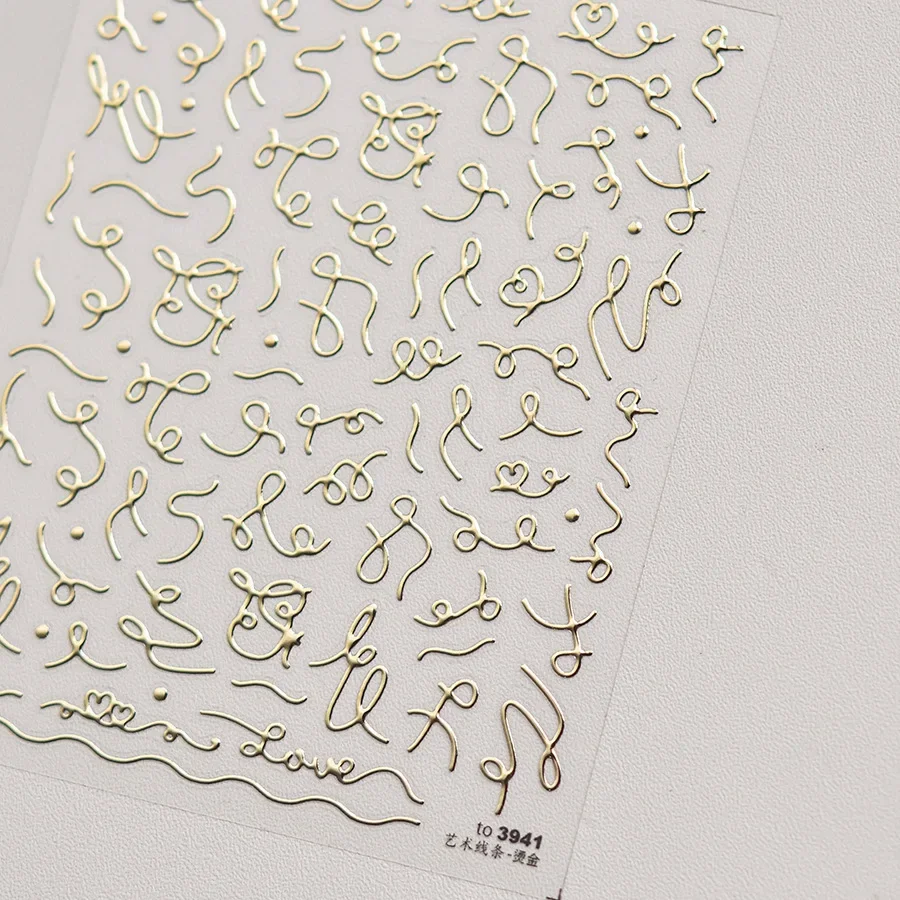 Love
to 3941
艺术线条-烫金